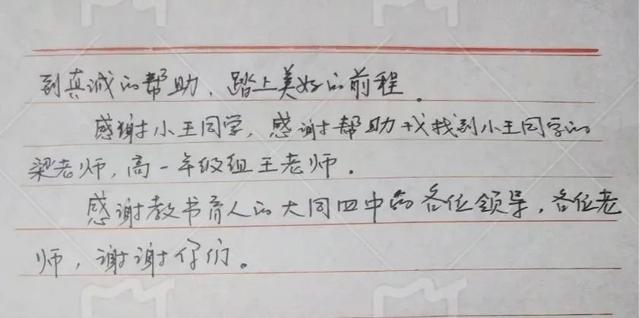 到真诚的帮助，踏上美好的前程。
感谢小王同学，感谢帮助我找到小王同学的
梁老师，高一年级组王老师。
感谢教书育人的大同四中的各位领导，各位老
师，谢谢你们。